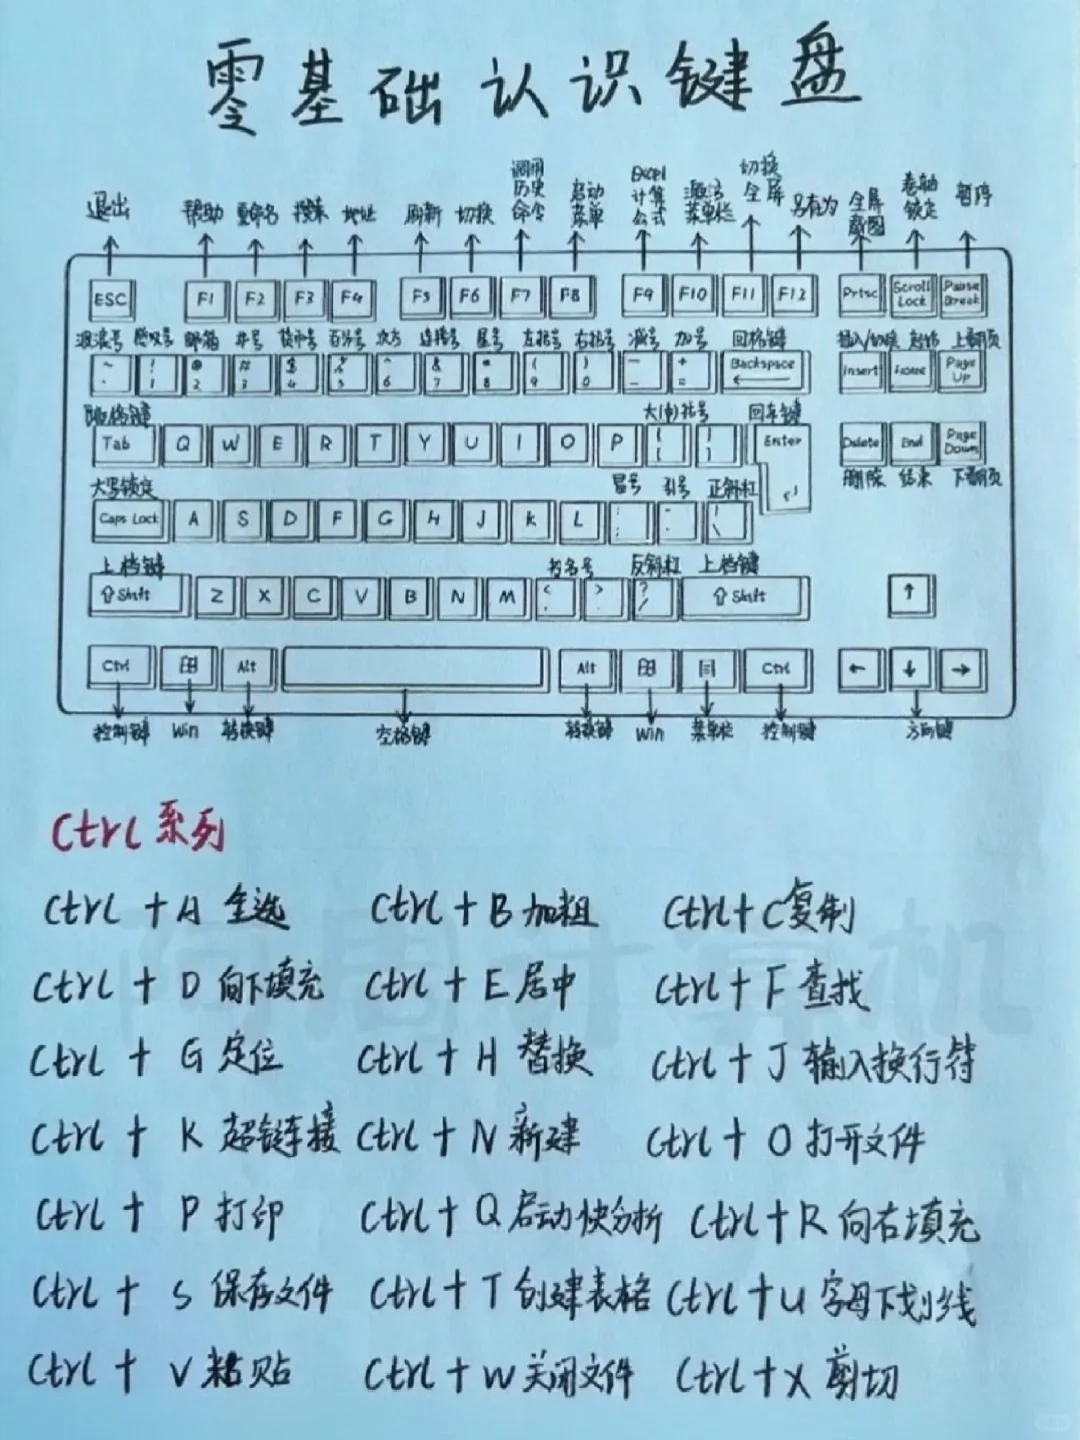 零基础认识键盘
退出 帮助 重命名 搜索 地址 刷新 切换 调用历史命令 启动菜单 Excel计算公式 激活菜单栏 切换全屏 另存为 全屏截图 卷轴锁定 暂停
ESC F1 F2 F3 F4 F5 F6 F7 F8 F9 F10 F11 F12 Prtsc Scroll Lock Pause Break
波浪号 感叹号 邮箱 井号 货币号 百分号 次方 连接号 星号 左括号 右括号 减号 加号 回格键 插入/切换 起始 上翻页
~ ! 1 @ 2 # 3 $ 4 % 5 ^ 6 & 7 * 8 ( 9 ) 0 - + = Backspace Insert Home Page Up
大(中)括号 回车键
Tab Q W E R T Y U I O P Enter Delete End Page Down
大写锁定 冒号 引号 正斜杠 删除 结束 下翻页
Caps Lock A S D F G H J K L
上档键 书名号 反斜杠 上档键
⇧Shift Z X C V B N M < > ? / ⇧Shift ↑
Ctrl Alt Alt Ctrl ← ↓ →
控制键 Win 转换键 空格键 转换键 Win 菜单栏 控制键 方向键
Ctrl系列
Ctrl + A 全选 Ctrl + B 加粗 Ctrl + C 复制
Ctrl + D 向下填充 Ctrl + E 居中 Ctrl + F 查找
Ctrl + G 定位 Ctrl + H 替换 Ctrl + J 输入换行符
Ctrl + K 超链接 Ctrl + N 新建 Ctrl + O 打开文件
Ctrl + P 打印 Ctrl + Q 启动快分析 Ctrl + R 向右填充
Ctrl + S 保存文件 Ctrl + T 创建表格 Ctrl + U 字母下划线
Ctrl + V 粘贴 Ctrl + W 关闭文件 Ctrl + X 剪切